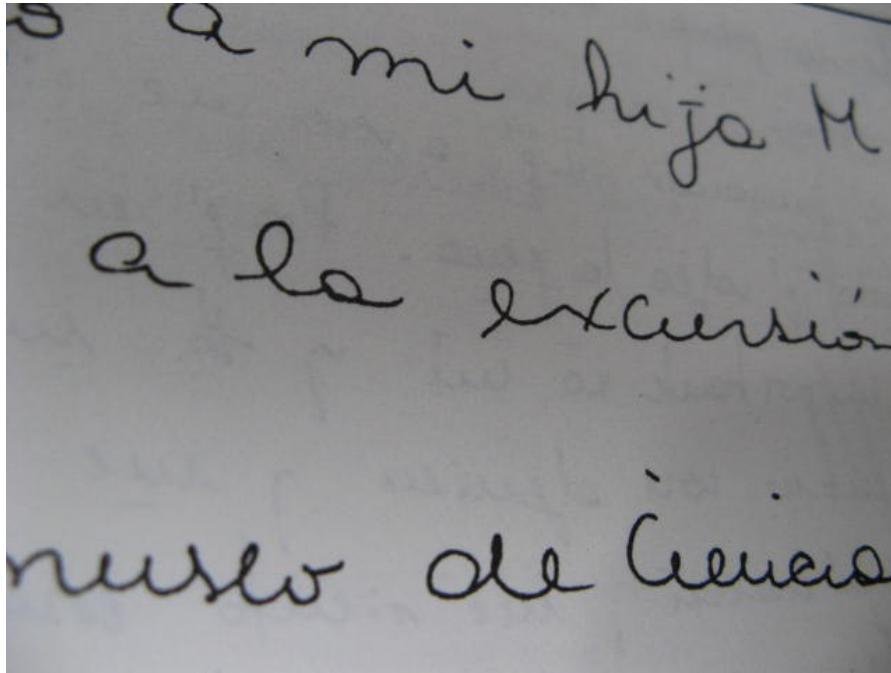 s a mi hija M
a la excursión
museo de Ciencias